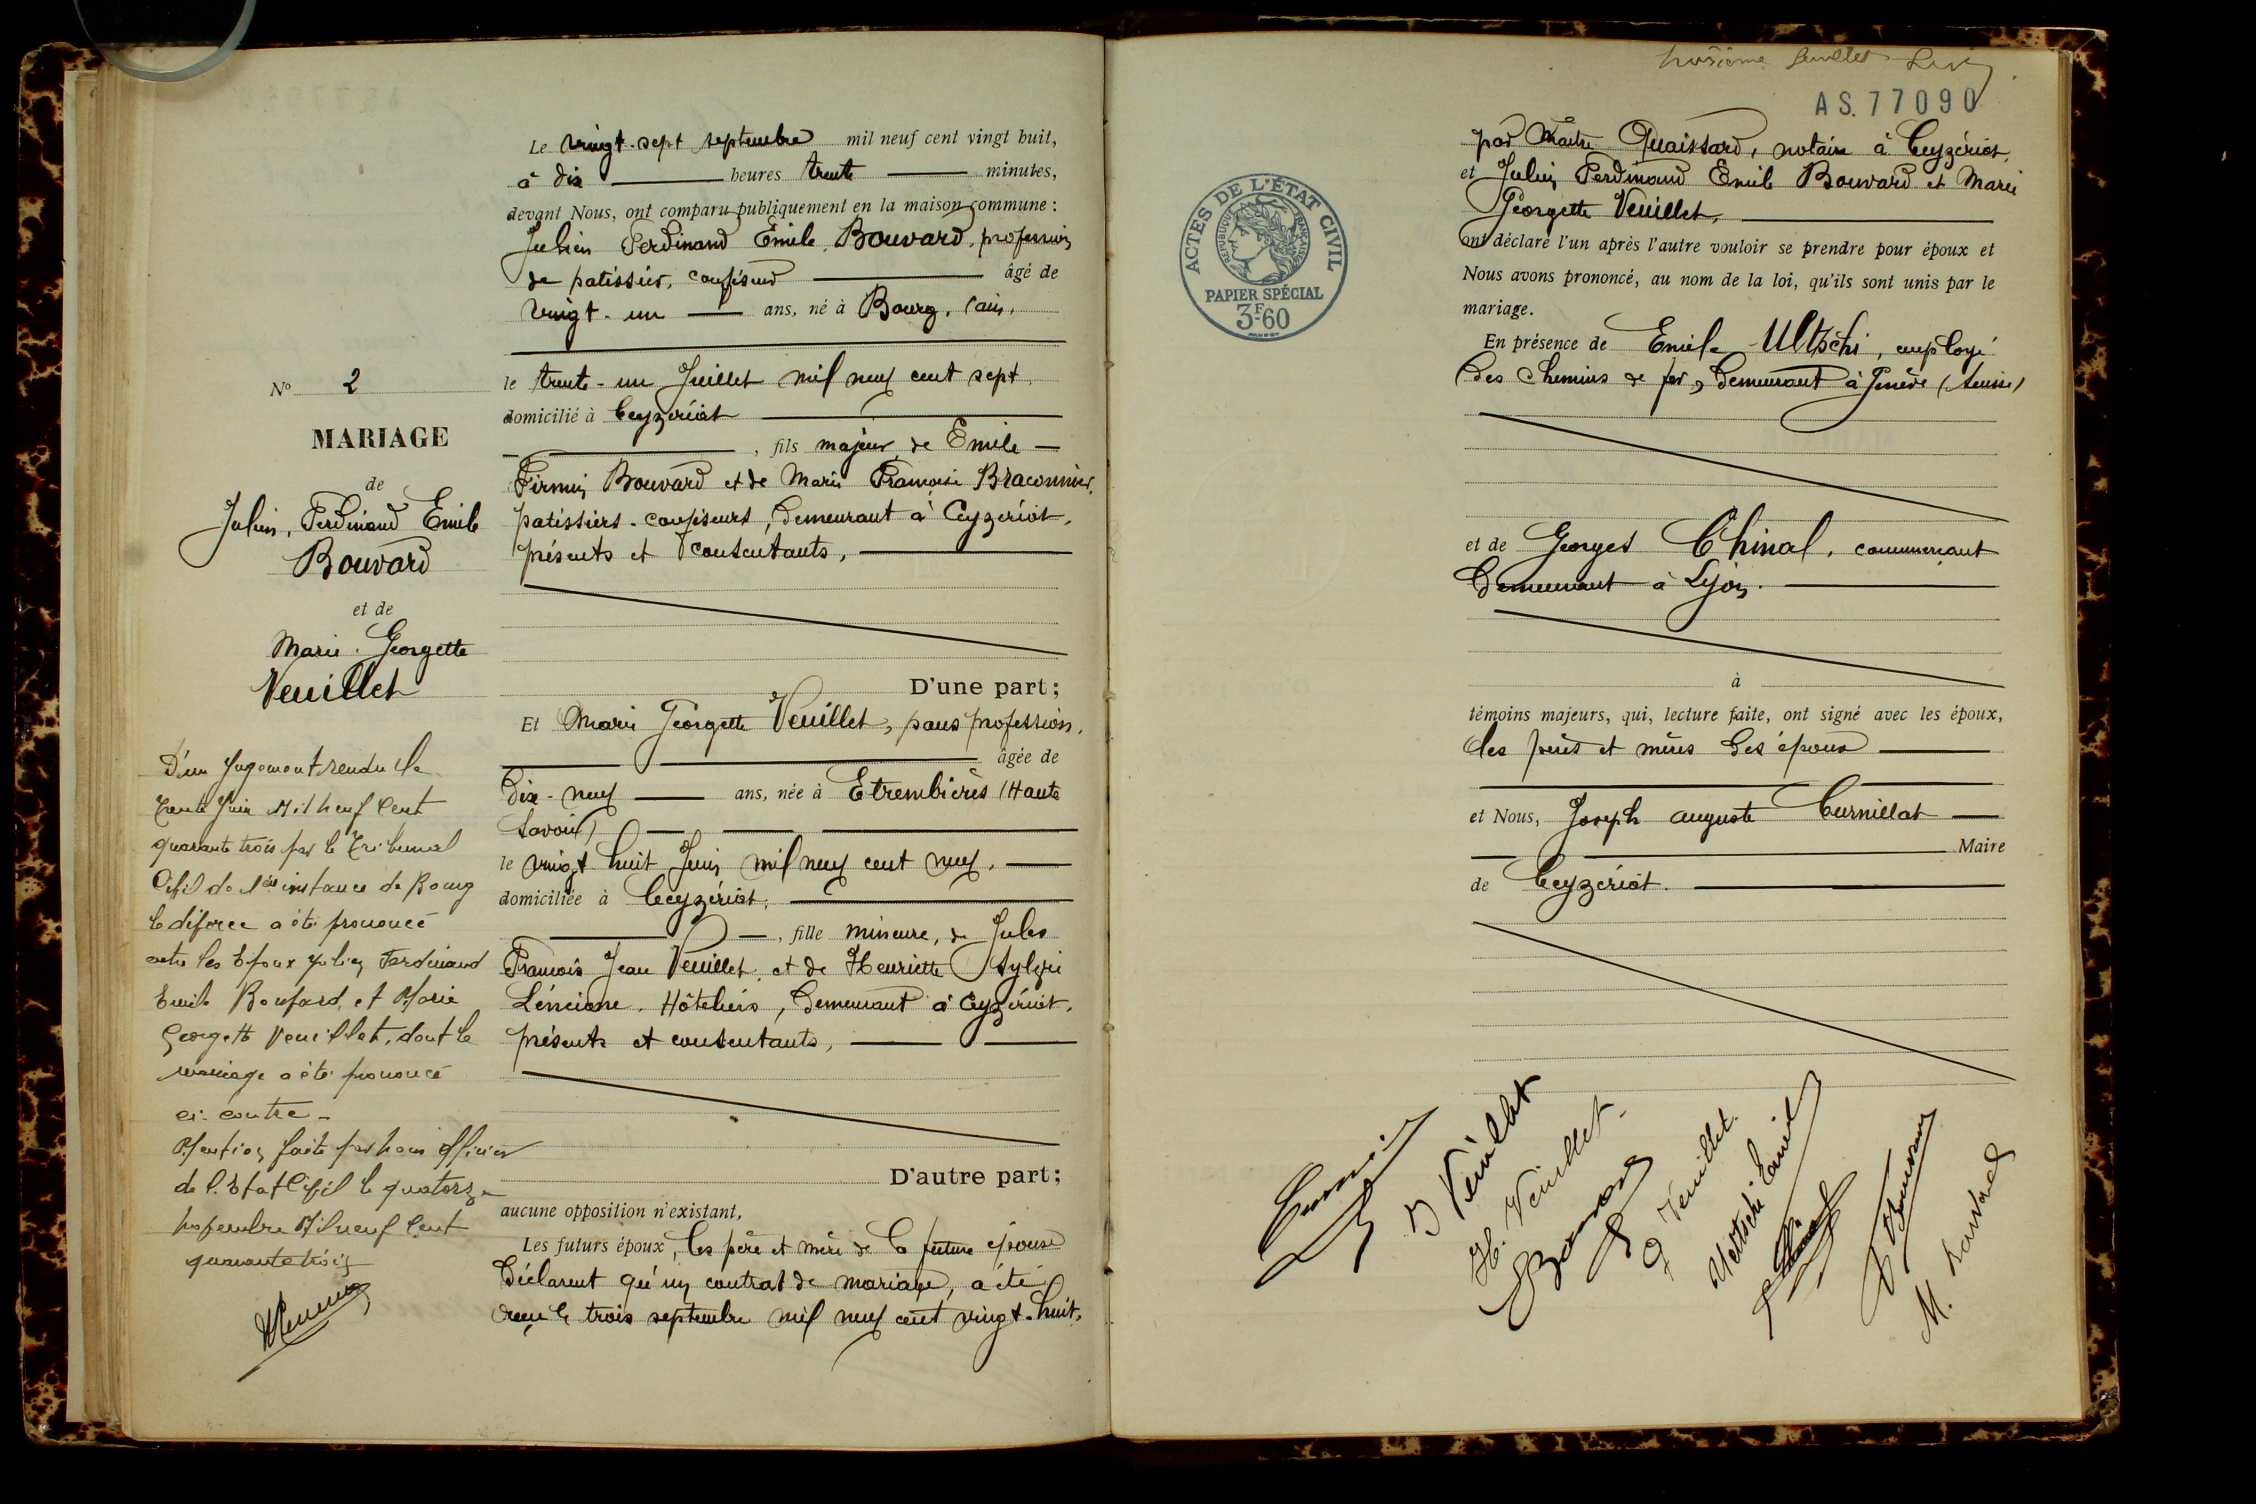 Le vingt-sept septembre mil neuf cent vingt huit,
à dix heures trente minutes,
devant Nous, ont comparu publiquement en la maison commune :
Julien Ferdinand Emile Bouvard, profession
de patissier, confiseur âgé de
vingt-un ans, né à Bourg, (ain,
N° 2
le trente-un Juillet mil neuf cent sept,
domicilié à Ceyzériat
MARIAGE
, fils majeur de Emile
de
Firmin Bouvard et de Marie Françoise Braconnier,
Julien, Ferdinand Emile
patissiers-confiseurs, demeurant à Ceyzériat,
Bouvard
présents et consentants,
et de
Marie Georgette
Veuillet
D'une part;
Et Marie Georgette Veuillet, sans profession,
âgée de
dix-neuf ans, née à Etrembières (Haute
Savoie)
le vingt huit Juin mil neuf cent neuf,
domiciliée à Ceyzériat,
, fille mineure, de Jules
François Jean Veuillet, et de Henriette
Hôteliers, demeurant à Ceyzériat,
présents et consentants,
D'autre part;
aucune opposition n'existant,
Les futurs époux, les père et mère de la future épouse
déclarent qu'un contrat de mariage, a été
reçu le trois septembre mil neuf cent vingt-huit,
D'un Jugement rendu le
trente Juin Mil neuf Cent
quarante trois par le Tribunal
Civil de 1ère instance de Bourg
le divorce a été prononcé
entre les Epoux Julien Ferdinand
Emile Bouvard, et Marie
Georgette Veuillet, dont le
mariage a été prononcé
ci-contre -
Mention faite par nous officier
de l'Etat Civil le quatorze
novembre Mil neuf Cent
quarante trois
troisième feuillet
AS.77090
par Maitre Quaissard, notaire à Ceyzériat,
et Julien Ferdinand Emile Bouvard et Marie
Georgette Veuillet,
ont déclaré l'un après l'autre vouloir se prendre pour époux et
Nous avons prononcé, au nom de la loi, qu'ils sont unis par le
mariage.
ACTES DE L'ÉTAT CIVIL
RÉPUBLIQUE FRANÇAISE
PAPIER SPÉCIAL
3F60
En présence de Emile Ultschi, employé
des chemins de fer, demeurant à Genève (Suisse)
et de Georges Chinal, commerçant
demeurant à Lyon.
à
témoins majeurs, qui, lecture faite, ont signé avec les époux,
les pères et mères des époux
et Nous, Joseph auguste Curnillat
Maire
de Ceyzériat.
J Veuillet
H. Veuillet
E Bouvard
G Veuillet
Ultschi Emile
Chinal
J Bouvard
M. Bouvard